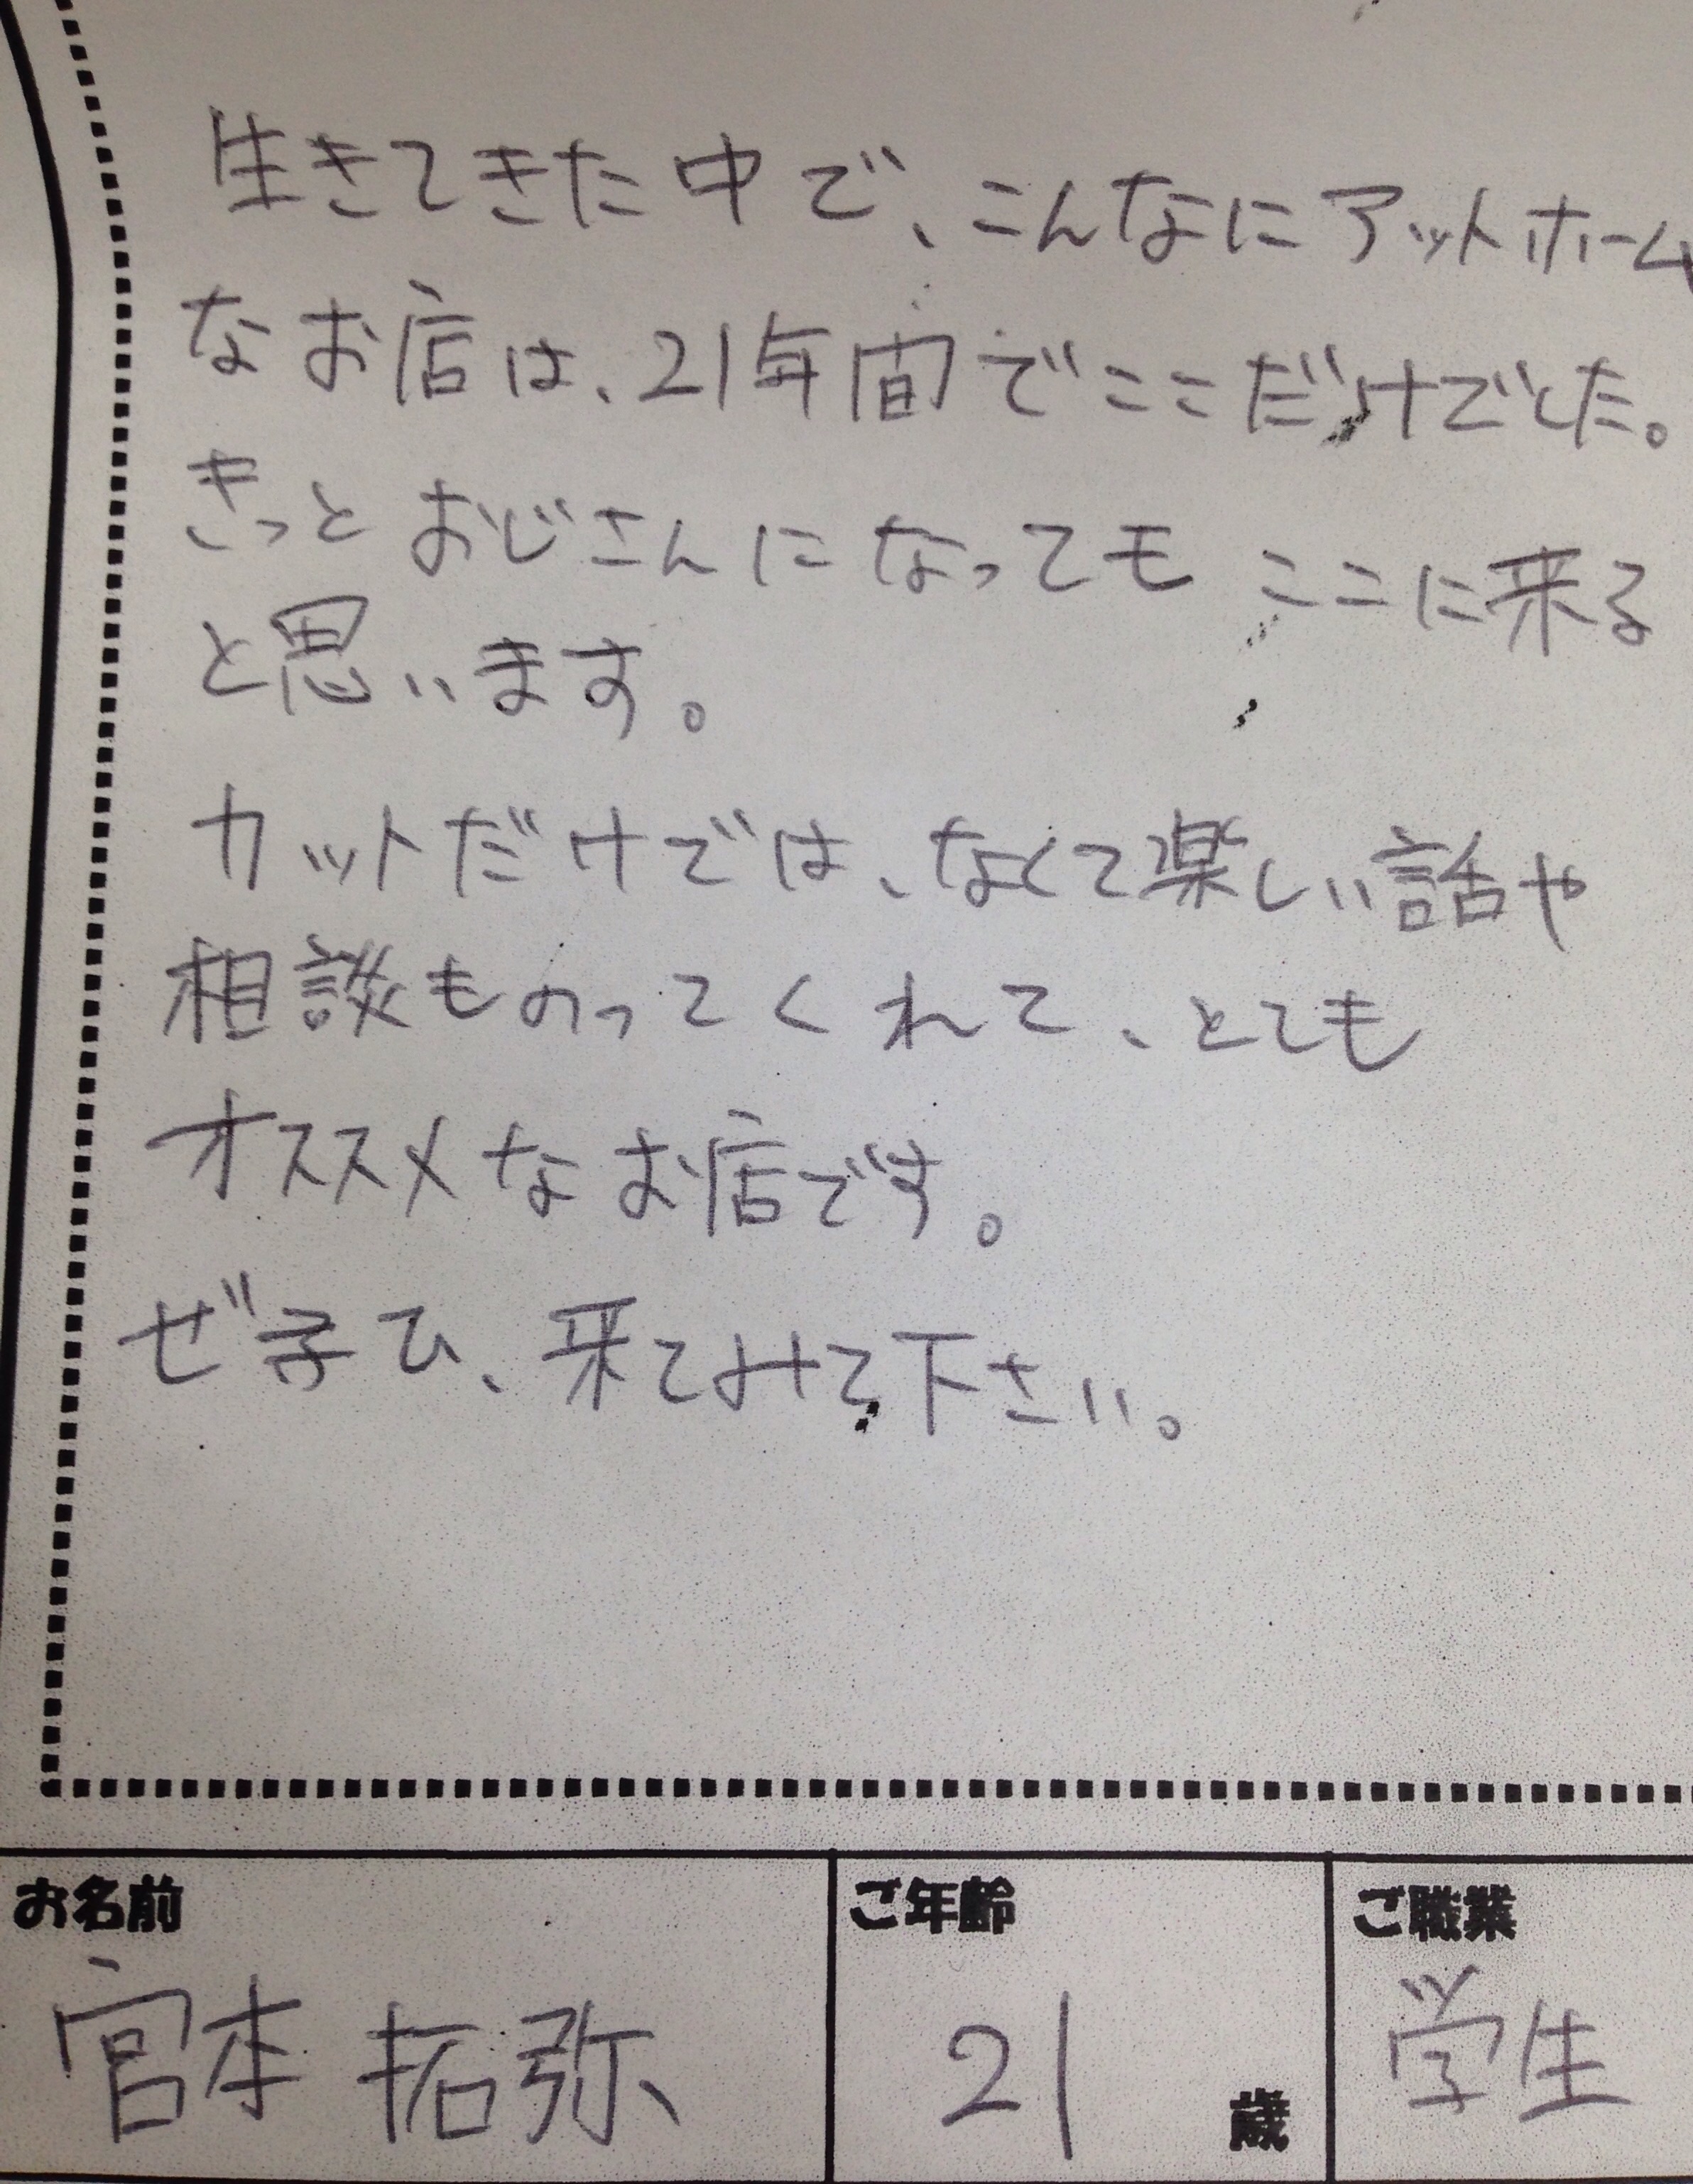 生きてきた中で、こんなにアットホーム
なお店は、21年間でここだけでした。
きっとおじさんになってもここに来る
と思います。
カットだけでは、なくて楽しい話や
相談ものってくれて、とても
オススメなお店です。
ぜひ、来てみて下さい。
お名前
宮本 拓弥
ご年齢
21 歳
ご職業
学生